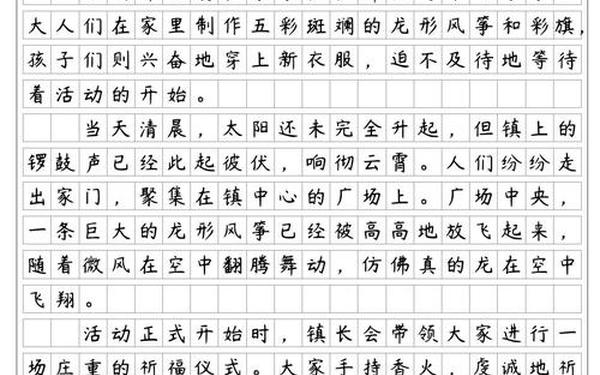 大人们在家里制作五彩斑斓的龙形风筝和彩旗，
孩子们则兴奋地穿上新衣服，迫不及待地等待
着活动的开始。
当天清晨，太阳还未完全升起，但镇上的
锣鼓声已经此起彼伏，响彻云霄。人们纷纷走
出家门，聚集在镇中心的广场上。广场中央，
一条巨大的龙形风筝已经被高高地放飞起来，
随着微风在空中翻腾舞动，仿佛真的龙在空中
飞翔。
活动正式开始时，镇长会带领大家进行一
场庄重的祈福仪式。大家手持香火，虔诚地祈